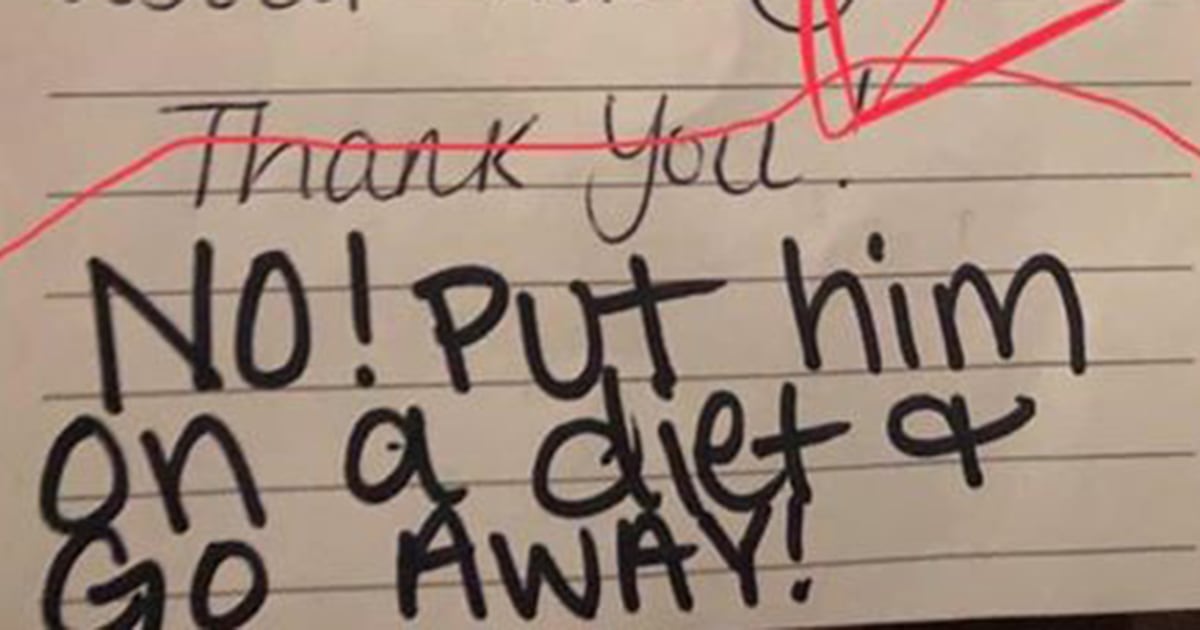 Thank you.
NO! Put him
on a diet &
GO AWAY!